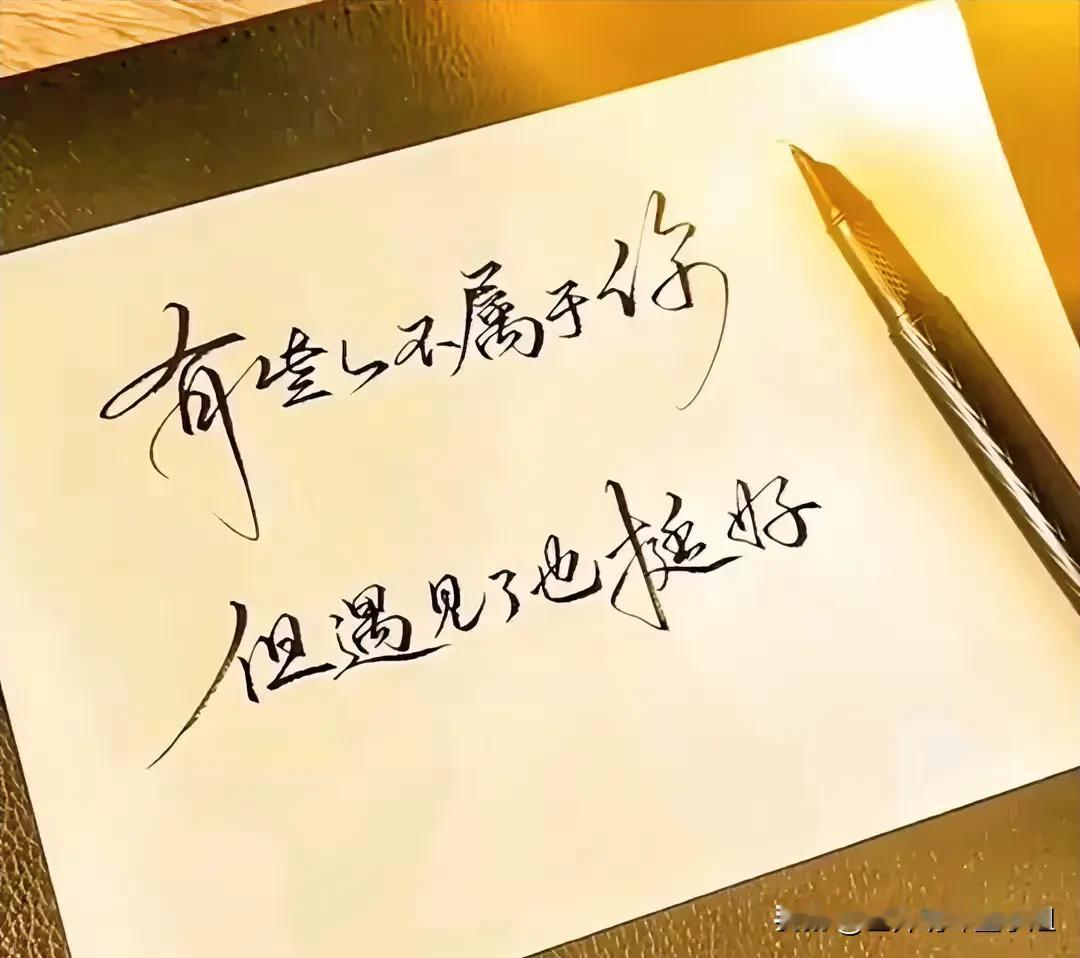 有些人不属于你
但遇见了也挺好